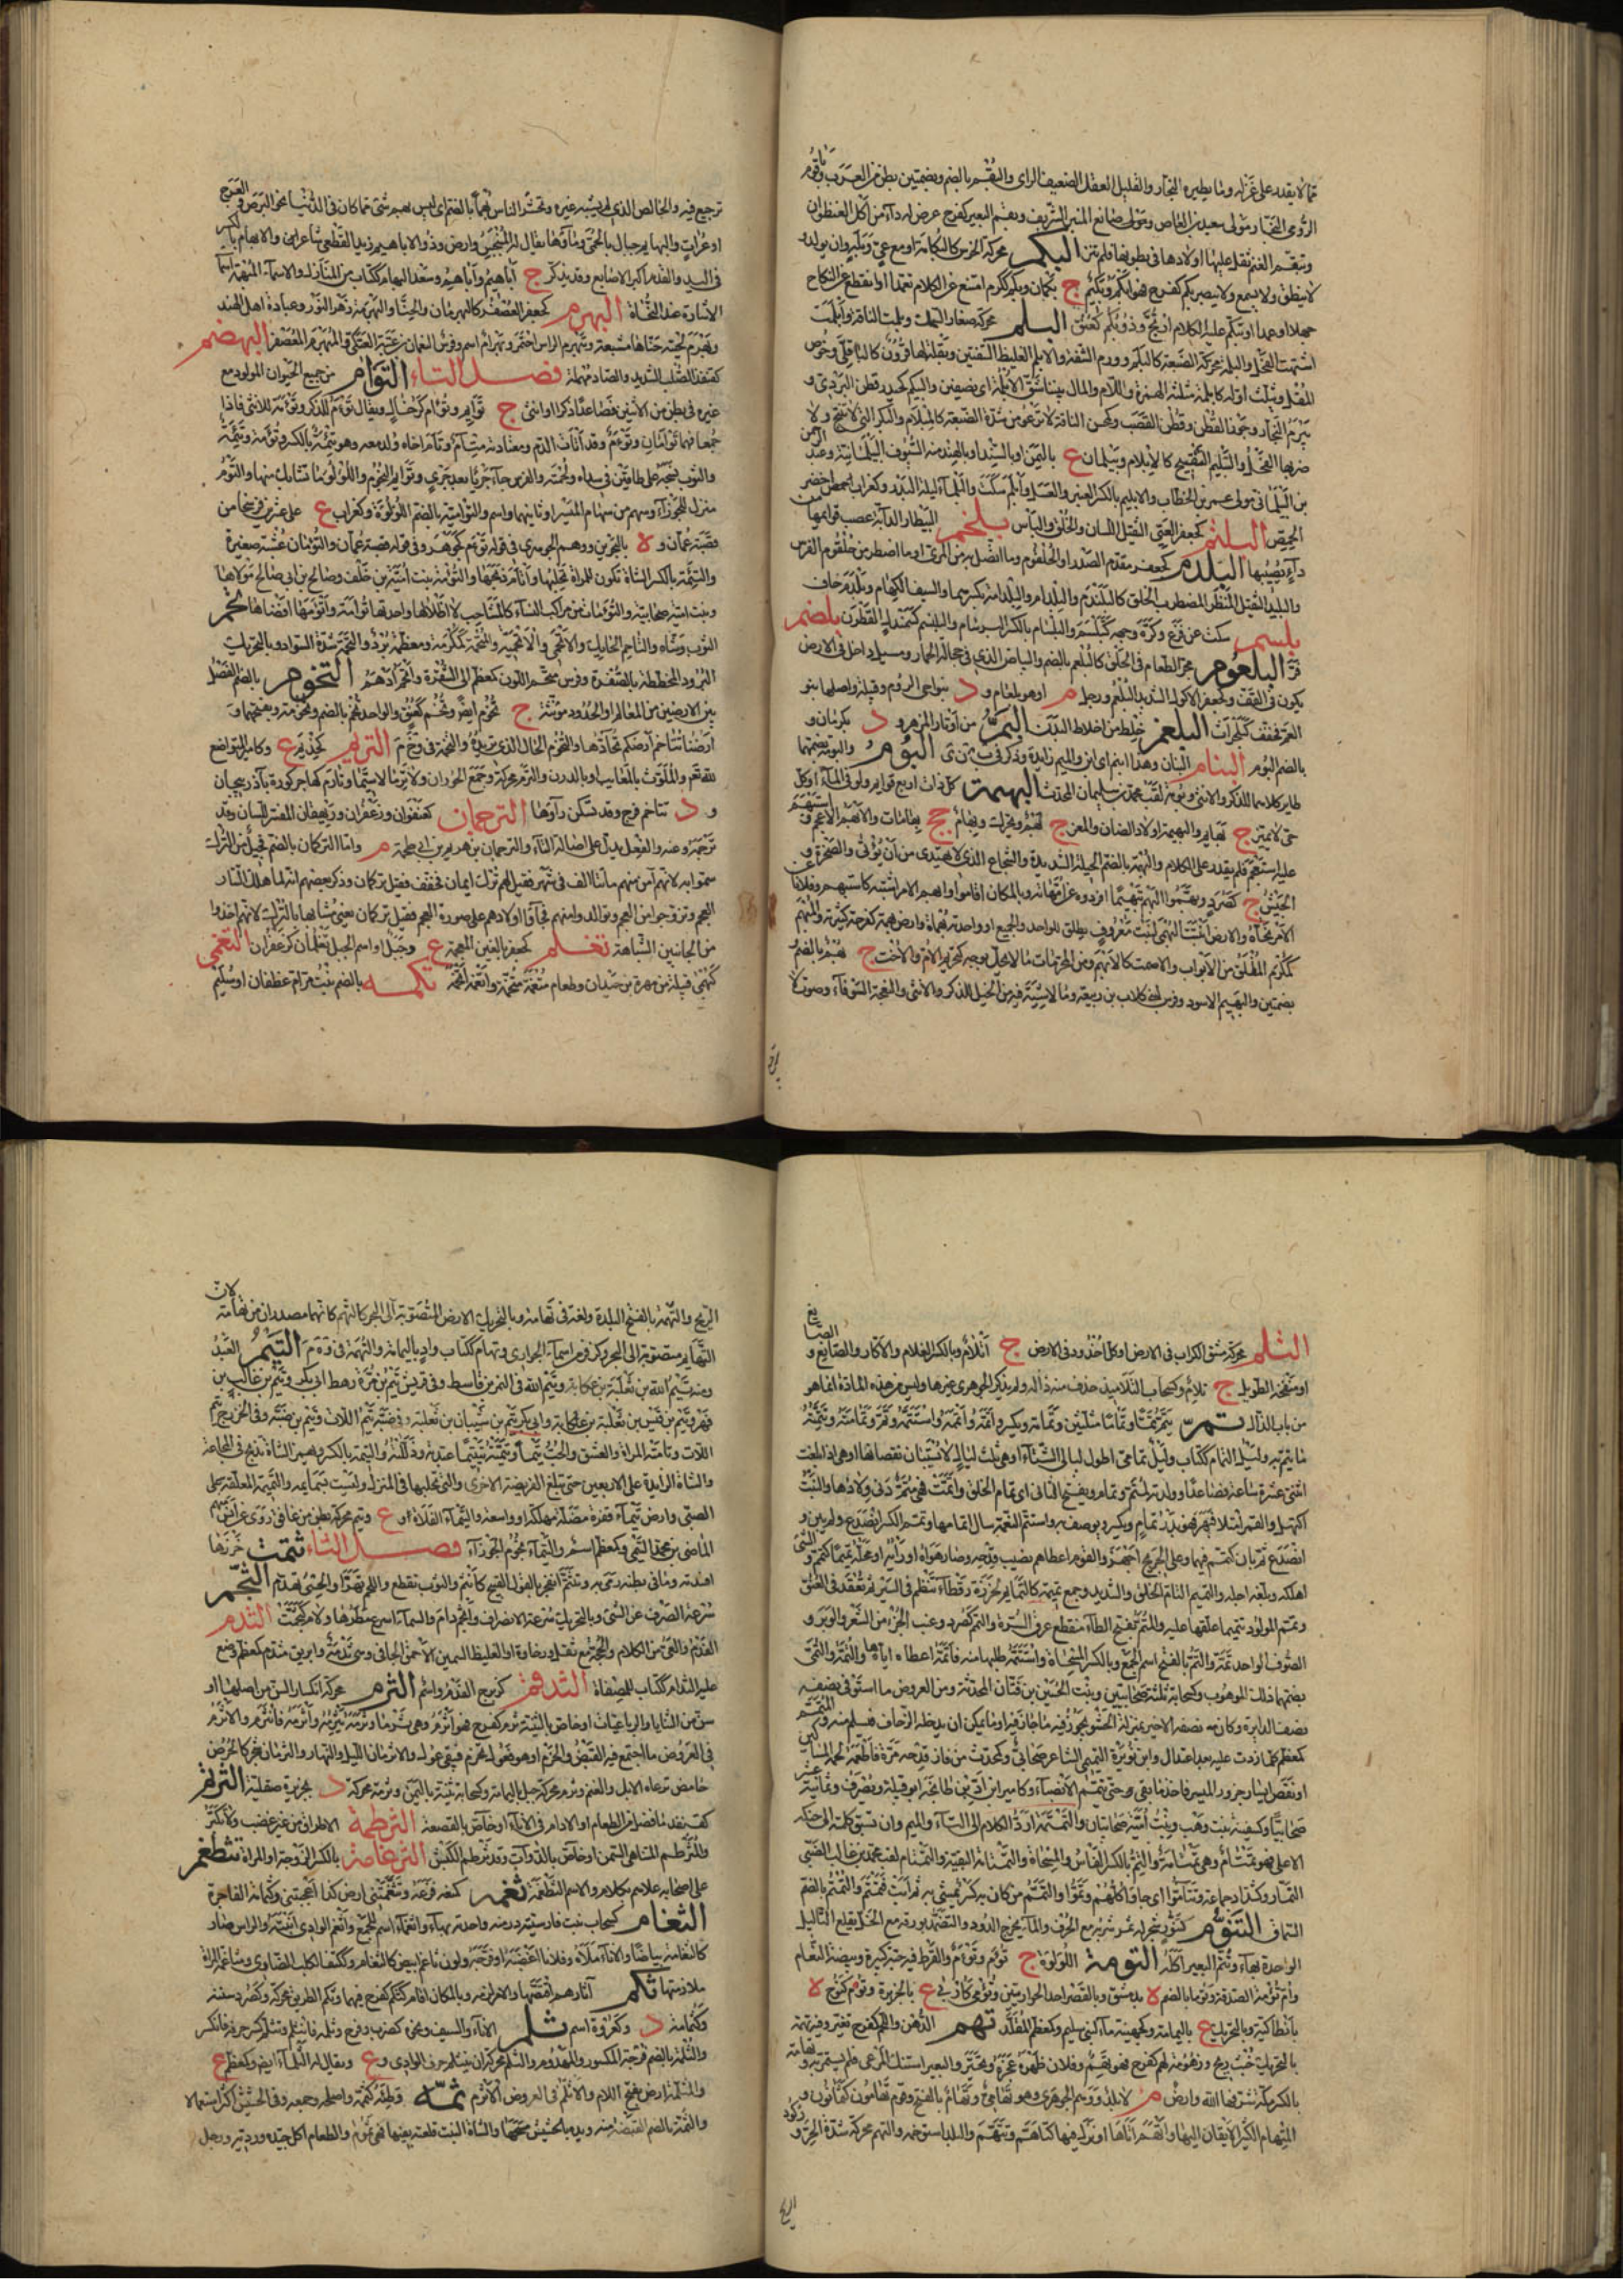 ما لا يقدر على عزله وما يطيره النجار والقليل العقل الضعيف الراى والبقم بالضم وبضمتين بطن من العرب وباقوم
الرومى النجار مولى سعيد بن العاص ومولى صانع المنبر الشريف وبقم البعير كفرح عرض له داء من اكل العنظوان
وتبقم الغنم ثقل عليها اولادها فى بطونها فلم تثر البكم محركة الخرس كالبكامة او مع عى وبله او ان يولد و
لا ينطق ولا يسمع ولا يبصر بكم كفرح فهو ابكم وبكيم ج بكمان وبكم ككرم امتنع عن الكلام تعمدا او انقطع عن النكاح
جهلا او عمدا وتبكم عليه الكلام ارتج وذو بكم كعنق البلم محركة صغار السمك وبلمت الناقة وابلمت
اشتهت الفحل والبلمة محركة الضبعة كالبلم وورم الشفة والابلم الغليظ الشفتين وبقلة لها قرون كالباقلى وخوص
المقل ويثلث اوله كابلمة مثلثة الهمزة واللام والمال بيننا شق الابلمة اى نصفين والبيلم كحيدر قطن البردى و
بيرم النجار وجوز القطن وقطن القصب وكمحسن الناقة لا ترغو من شدة الضبعة كالمبلام والبكر التى لا تنتج ولا
ضربها الفحل والتبليم التقبيح كالابلام وبيلمان ع باليمن او بالسند او بالهند منه السيوف البيلمانية وعبد الرحمن
بن البيلمانى مولى عمر بن الخطاب والابليم بالكسر العنبر والعسل وابلم سكت والبلماء ليلة البدر وكغراب اخضر
الحمض البلثم كجعفر العيى الثقيل اللسان والخلق والبلس بلخم البيطار الدابة عصب قوائمها من
داء يصيبها البلدم كجعفر مقدم الصدر او الحلقوم وما اتصل به من المرئ او ما اضطرب من حلقوم الفرس
والبليد الثقيل المنظر المضطرب الخلق كالبلندم والبلدام والبلدامة بكسرهما والسيف الكهام وبلدم خاف
بلسم سكت عن فزع وكره وجهه كتبلسم والبلسام بالكسر البرسام والبلنسم كسمندل القطران بلصم
فر البلعوم مجرى الطعام فى الحلق كالبلعم بالضم والبياض الذى فى جحفلة الحمار ومسيل داخل فى الارض
يكون فى القف وكجعفر الاكول الشديد البلع ورجل م او هو بلعام و د بنواحى الروم وقبيلة واصلها بنو
العم فخفف كبلحرث البلغم خلط من اخلاط البدن البم من اوتار المزهر و د بكرمان و
بالضم البوم البنام البنان وهذا ابنم اى ابن والميم زايدة وذكر فى ب ن ى البوم والبومة بضمهما
طاير كلاهما للذكر والانثى وبومة لقب محمد بن سليمان المحدث البهيمة كل ذات اربع قوايم ولو فى الماء او كل
حى لا يميز ج بهايم والبهمة اولاد الضان والمعز ج بهم ويحرك وبهام جج بهامات والابهم الاعجم واستبهم
عليه استعجم فلم يقدر على الكلام والبهمة بالضم الخطة الشديدة والشجاع الذى لا يهتدى من اين يؤتى والصخرة و
الجيش ج كصرد وبهموا البهم تبهيما افردوه عن امهاته وبالمكان اقاموا وابهم الامر اشتبه كاستبهم وفلانا عن
الامر نحاه والارض انبتت البهمى لنبت معروف يطلق للواحد والجميع او واحدته بهماة وارض بهمة كفرحة كثيرته والمبهم
كمكرم المغلق من الابواب والاصمت كالابهم ومن المحرمات ما لا يحل بوجه كتحريم الام والاخت ج بهم بالضم و
بضمتين والبهيم الاسود وفرس لبنى كلاب بن ربيعة وما لا شية فيه من الخيل الذكر والانثى والنعجة السوداء وصوت لا
ترجيع فيه والخالص الذى لم يشبه غيره ويحشر الناس بهما بالضم اى ليس بهم شئ مما كان فى الدنيا نحو البرص والعرج
او عراة والبهايم جبال بالحمى وماؤها يقال له المنبجس وارض وذو الاباهيم زيد القطعى شاعر والابهام بالكسر
فى اليد والقدم اكبر الاصابع وقد يذكر ج اباهيم واباهم وسعد البهام ككتاب من المنازل والاسماء المبهمة اسماء
الاشارة عند النحاة البهرم كجعفر العصفر كالبهرمان والحناء والبهرمة زهر النور وعبادة اهل الهند
وبهرم لحيته حناها مشبعة وتبهرم الراس احمر وبهرام اسم وفرس النعمان بن عتبة العتكى والمبهرم المعصفر البهصم
كقنفذ الصلب الشديد والصاد مهملة فصل التاء التوام من جميع الحيوان المولود مع
غيره فى بطن من الاثنين فصاعدا ذكرا او انثى ج توايم وتؤام كرخال ويقال توام للذكر وتوامة للانثى فاذا
جمعا فهما توامان وتوام وقد اتامت الام ومعتادته متيام وتاءم اخاه ولد معه وهو تئمه بالكسر وتؤمه وتئيمه
والثوب نسجه على طاقين فى سداه ولحمته والفرس جاء جريا بعد جرى وتوايم النجوم واللؤلؤ ما تشابك منها والتوام
منزل للجوزاء وسهم من سهام الميسر او ثانيها واسم والتوامية بالضم اللؤلؤة وكغراب ع على عشرين فرسخا من
قصبة عمان و ة بالبحرين ووهم الجوهرى فى قوله توام كجوهر وفى قوله قصبة عمان والتوامان عشبة صغيرة
والتيمة بالكسر الشاة تكون للمراة تحلبها واتام ذبحها والتوامة بنت امية بن خلف وصالح بن ابى صالح مولاها
وبنت امية صحابية والتوامات من مراكب النساء كالمشاجب لا اظلال لها واحدتها توامة واتومها افضاها تحم
الثوب وشاه والتاحم الحايك والاتحمى والاتحمية والمتحمة كمكرمة ومعظمة برد والتحمة شدة السواد وبالتحريك
البرود المخططة بالصفرة وفرس متحم اللون كمعظم الى الشقرة واتحم ادهم التخوم بالضم الفصل
بين الارضين من المعالم والحدود مؤنثة ج تخوم ايضا وتخم كعنق والواحد تخم بالضم وتخم وتخومة وبفتحهما و
ارضنا تتاخم ارضكم تحادها والتخوم الحال الذى تريده والتخمة فى وخ م التريم كحذيم ع وكامير المتواضع
لله تعالى والملوث بالمعايب او بالدرن والترم محركة وجع الخوران ولا ترما لاسيما وتارم كهاجر كورة باذربيجان
و د تتاخم فرج وقد تسكن راؤها الترجمان كعنفوان وزعفران وريهقان المفسر للسان وقد
ترجمه وعنه والفعل يدل على اصالة التاء والترجمان بن هريم بن ابى طخمة م واما التركمان بالضم فجيل من الترك
سموا به لانهم آمن منهم مائتا الف فى شهر فقيل لهم ترك ايمان فخفف فقيل تركمان وذكر بعضهم انه لما هلك التتار
العجم وتزوجوا من العجم وتوالدوا منهم فجاؤا اولادهم على صورة العجم فقيل تركمان يعنى مشابها بالترك لانهم اخذوا
من الجانبين الشباهة تغلم كجعفر بالغين المعجمة ع وجبل او اسم الجبل تغلمان كزعفران التغمى
كهنى قبيلة من مهرة بن حيدان وطعام متغمة متخمة واتغمه اتخمه تكمه بالضم بنت مر ام غطفان او سليم
الثلم محركة مشق الكراب فى الارض او كل اخدود فى الارض ج اتلام وبالكسر الغلام والاكار والصايغ و
او منفخه الطويل ج تلام وكسحاب التلاميذ حذف منه ذاله ولم يذكر الجوهرى غيرها وليس من هذه المادة انما هو
من باب الذال تم يتم تما وتماما مثلثتين وتمامة ويكسر واتمه وتممه واستتمه وتم به وعليه وتمام الشئ وتمامته وتتمته
ما يتم به وليل التمام ككتاب وليل تمامى اطول ليالى الشتاء او هى ثلث ليال لا يستبان نقصانها او هى اذا بلغت
اثنتى عشرة ساعة فصاعدا وولدته لتم وتمام ويفتح الثانى اى تمام الخلق واتمت فهى متم دنى ولادها والنبت
اكتهل والقمر امتلا فبهر فهو بدر تمام ويكسر ويوصف به واستتم النعمة سال اتمامها وتمم الكسر انصدع ولم يبن و
انصدع ثم بان كتتمم فيهما وعلى الجريح اجهز والقوم اعطاهم نصيب قدحه وصار هواه او رايه او محلته تميميا كتتمم والشئ
اهلكه وبلغه اجله والتميم التام الخلق والشديد وجمع تميمة كالتمايم لخرزة رقطاء تنظم فى السير ثم يعقد فى العنق
وتمم المولود تتميما علقها عليه والمتم بفتح التاء منقطع عرق السرة والتمم كصرد وعنب الجزز من الشعر والوبر و
الصوف الواحد تمة والتم بالفتح اسم الجمع وبالكسر المسحاة واستتمه طلبها منه فاتمه اعطاه اياها والتمة والتمى
بضمهما ذلك الموهوب وكسحابة ثلثة صحابيين وبنت الحسين بن قنان المحدثة ومن العروض ما استوفى نصفه
نصف الدايرة وكان نصفه الاخير بمنزلة الحشو يجوز فيه ما جاز فيه او ما يمكن ان يدخله الزحاف فيسلم منه والمتمم
كمعظم كل ما زدت عليه بعد اعتدال وابن نويرة التميمى الشاعر صحابى وكمحدث من فاز قدحه مرة فاطعم لحمه المساكين
او نقص ايسار جزور الميسر فاخذ ما بقى حتى يتمم الانصباء وكامير ابن اد بن طابخة ابو قبيلة ويصرف وثمانية عشر
صحابيا وكسفينة بنت وهب وبنت امية صحابيتان والتمتمة رد الكلام الى التاء والميم وان تسبق كلمته الى حنكه
الاعلى فهو تمتام وهى تمتامة والتم بالكسر الفاس والمسحاة والتمامة البقية والتمتام لقب محمد بن غالب الضبى
التمار وكشداد جماعة وتتاموا اى جاؤا كلهم وتموا والتتمم من كان به كسر يمشى به ثم ابت فتتمم والتمم بالضم
السماق التنوم كتنور شجر له ثمر شربه مع الحرف والماء يخرج الدود والتضمد بورقه مع الخل يقلع الثآليل
الواحدة بهاء وتنم البعير اكله التومة اللؤلؤة ج توم وتوم والقرط فيه حبة كبيرة وبيضة النعام
وام تومة الصدفة وتوما بالضم ة بدمشق وبالقصر احد الحواريين وتومى كاربى ع بالجزيرة وتوم كنوم ة
بانطاكية وبالتحريك ع باليمامة وكجهينة ماء لبنى سليم وكمعظم المقلد تهم الدهن واللحم كفرح تغير وفيه تهمة
بالتحريك خبث ريح وزهومة فهو تهم كفرح فهو تهيم وفلان ظهر عجزه وتحير والبعير استنكر المرعى فلم يستمره وتهامة
بالكسر مكة شرفها الله وارض م لا بلد ووهم الجوهرى وهو تهامى وتهام بالفتح وقوم تهامون كيمانون و
المتهام الكثير الاتيان اليها واتهم اتاها او نزل فيها كتاهم وتتهم والبلد استوخمه والتهم محركة شدة الحر وركود
الريح والتهمة بالفتح البلدة ولغة فى تهامة وبالتحريك الارض المتصوبة الى البحر كالتهم كانهما مصدران من تهامة لان
التهايم متصوبة الى البحر وكزفر من اسماء الجوارى وتهام ككتاب واد باليمامة والتهمة فى وه م التيم العبد
ومنه تيم الله بن ثعلبة بن عكابة وتيم الله فى النمر بن قاسط وفى قريش تيم بن مرة رهط ابى بكر وتيم بن غالب بن
فهر وتيم بن قيس بن ثعلبة بن عكابة وفى بكر تيم بن شيبان بن ثعلبة وفى ضبة تيم اللات وتيم بن ضبة وفى الخزرج تيم
اللات وتامته المراة والعشق والحب تيما وتيمته تتييما عبدته وذللته والتيمة بالكسر ويهمز الشاة تذبح فى المجاعة
والشاة الزايدة على الاربعين حتى تبلغ الفريضة الاخرى والتى تحلبها فى المنزل وليست بسايمة والتميمة المعلقة على
الصبى وارض تيماء قفرة مضلة مهلكة او واسعة والتيماء الفلاة و ع وتيم محركة بطن من غافق روى عنهم
الماضى بن محمد التيمى وكمعظم اسم والتيماء نجوم الجوزاء فصل الثاء ثتمت خرزها
افسدته وما فى بطنه رمى به وتثتم انفجر بالقول القبيح كانثتم والثوب تقطع واللحم تهرا والحسى تهدم الثجم
سرعة الصرف عن الشئ وبالتحريك سرعة الانصراف واثجم دام والسماء اسرع مطرها ودام كثجمت الثدم
الفدم والعى عن الكلام والحجة مع ثقل ورخاوة والغليظ السمين الاحمق الجافى وهى ثدمة وابريق مثدم كمعظم وضع
عليه الثدام ككتاب للمصفاة الثدقم كزبرج الفدم واسم الثرم محركة انكسار السن من اصلها او
سن من الثنايا والرباعيات او خاص بالثنية ثرم كفرح فهو اثرم وهى ثرماء وثرمه يثرمه واثرمه فانثرم والاثرم
فى العروض ما اجتمع فيه القبض والخرم او هو فعولن يخرم فيبقى عول والاثرمان الليل والنهار والثرمان شجر كالحرض
حامض ترعاه الابل والغنم وثرم محركة جبل باليمامة وكسحابة ثنية باليمن وثرمة محركة د بجزيرة صقلية الثرتم
كقنفذ ما فضل من الطعام او الادام فى الاناء او خاص بالقصعة الثرطمة الاطراق من غير غضب ولا تكبر
والمثرطم المتناهى السمن او خاص بالدواب وقد ثرطم الكبش الثرعامة بالكسر الزوجة او المراة تثطعم
على اصحابه علاهم بكلام والاسم الثطعمة ثعمه كمنعه نزعه وتثعمتنى ارض كذا اعجبتنى والثمامة الفاجرة
الثغام كسحاب نبت فارسيته درمنه واحدته بهاء واثغماء اسم للجمع واثغم الوادى انبته والراس صار
كالثغامة بياضا والاناء ملاه وفلانا اغضبه او فرحه ولون ثاغم ابيض كالثغام وككتف الكلب الضارى ومثاغمة المراة
ملازمتها ثكم آثارهم اقتصها والامر لزمه وبالمكان اقام كثكم كفرح فيهما وثكم الطريق محركة وكصرد سننه
وكثمامة د وكعزوة اسم ثلم الاناء والسيف ونحوه كضرب وفرح وثلمه فانثلم وتثلم كسر حرفه فانكسر
والثلمة بالضم فرجة المكسور والمهدوم والثلم محركة ان ينثلم حرف الوادى و ع ويقال له الثلماء ايضا وكمعظم ع
والمثلمة ارض بفتح اللام والاثلم فى العروض الاثرم ثمه وطئه كثممه واصلحه وجمعه وفى الحشيش اكثر استعمالا
والثمة بالضم القبضة منه ويده بالحشيش مسحها والشاة النبت قلعته بفيها فهى ثموم والطعام اكل جيده ورديه ورجل